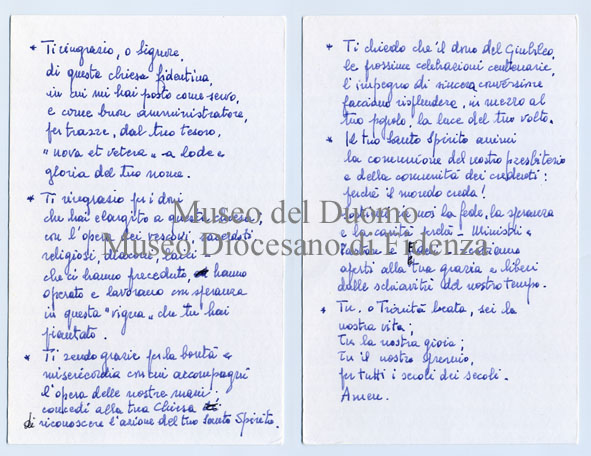 * Ti ringrazio, o Signore,
di questa chiesa fidentina,
in cui mi hai posto come servo,
e come buon amministratore,
per trarre, dal tuo tesoro,
"nova et vetera" a lode e
gloria del tuo nome.
* Ti ringrazio per i doni
che hai elargito a questa chiesa;
con l'opera dei vescovi, sacerdoti
religiosi, diaconi, laici
che ci hanno preceduto, hanno
operato e lavorano con speranza
in questa "vigna" che tu hai
piantato.
* Ti rendo grazie per la bontà e
misericordia con cui accompagni
l'opera delle nostre mani:
concedi alla tua Chiesa
di riconoscere l'azione del tuo Santo Spirito.
* Ti chiedo che il dono del Giubileo,
le prossime celebrazioni centenarie,
l'impegno di sincera conversione
facciano risplendere, in mezzo al
tuo popolo, la luce del tuo volto.
* Il tuo Santo Spirito animi
la comunione del nostro presbiterio
e della comunità dei credenti:
perché il mondo creda!
in noi la fede, la speranza
e la carità perché Ministri e
aperti alla tua grazia e liberi
dalle schiavitù del nostro tempo.
* Tu, o Trinità beata, sei la
nostra vita;
Tu la nostra gioia;
Tu il nostro premio,
per tutti i secoli dei secoli.
Amen.
Museo del Duomo
Museo Diocesano di Fidenza